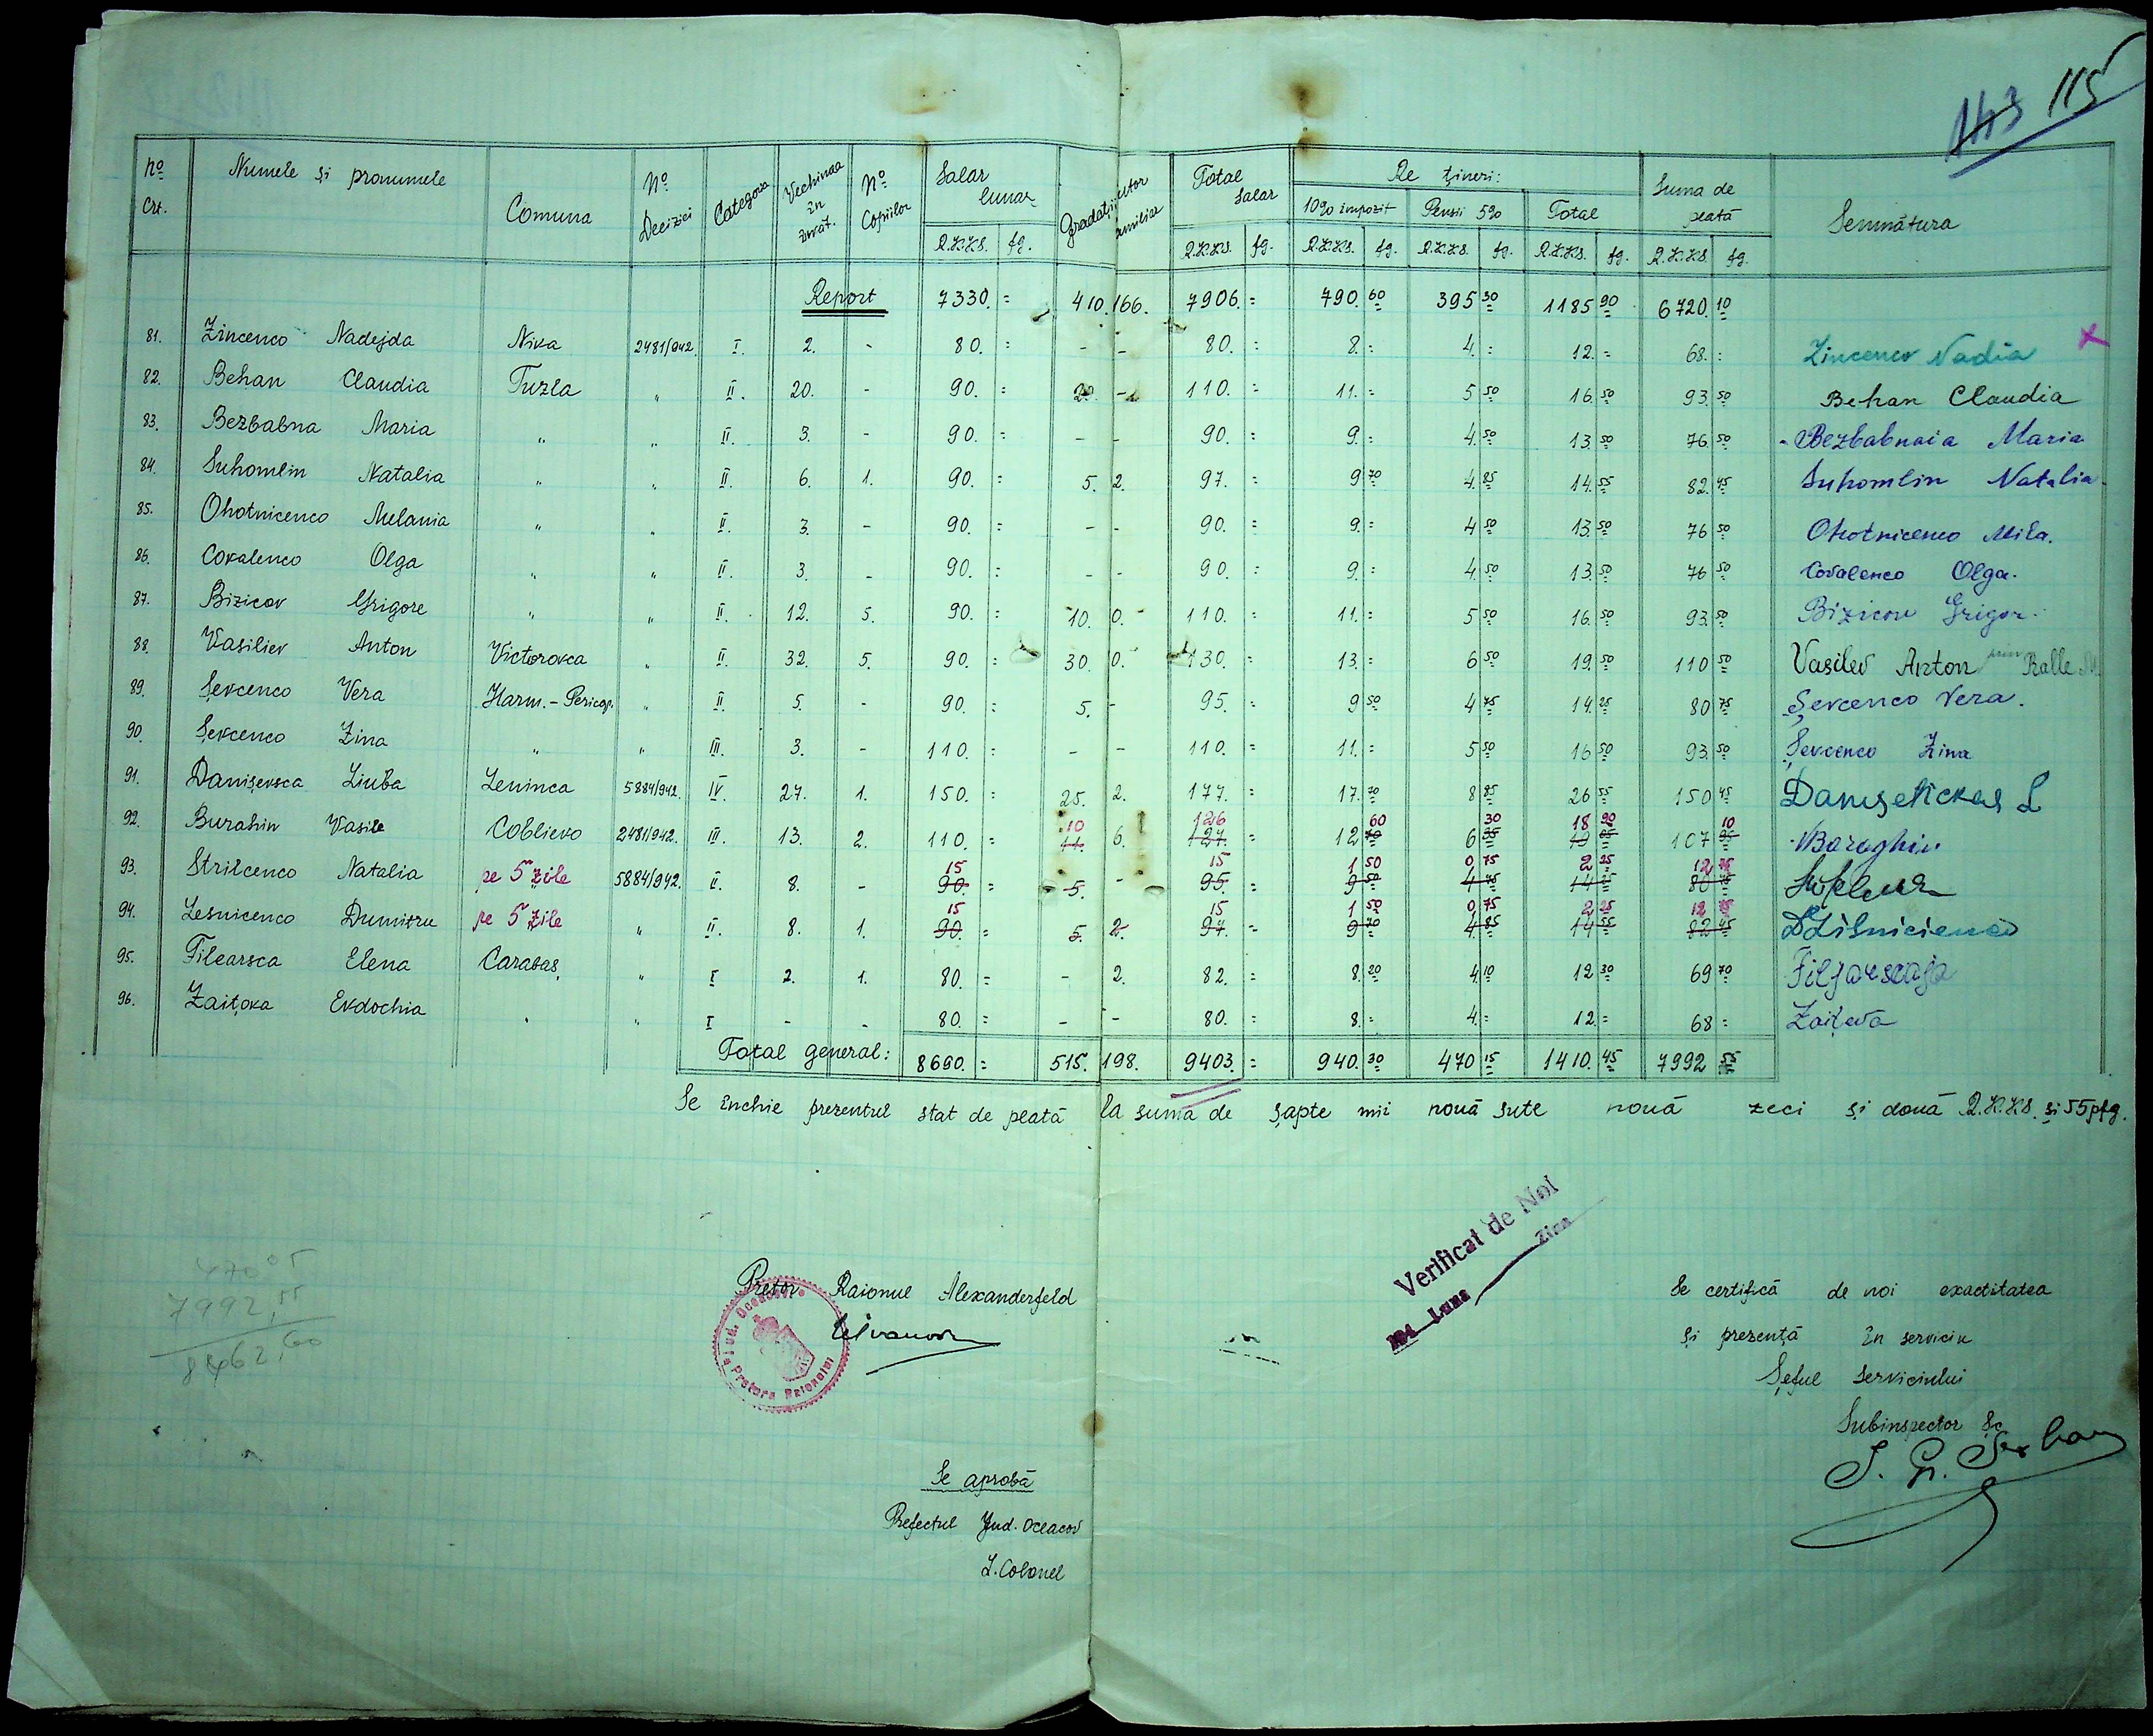 143 115
No Crt. Numele și pronumele Comuna No Deciziei Categoria Vechimea în învăț. No Copiilor Salar lunar Gradații Total Salar Re țineri: Suma de plată Semnătura
10% impozit Pensii 5% Total
R.K.K.S. fg. R.K.K.S. fg. R.K.K.S. fg. R.K.K.S. fg. R.K.K.S. fg. R.K.K.S. fg.
Report 7330. = 410. 166. 7906. = 790. 60 395 30 1185 90 6720. 10
81. Zincenco Nadejda Niva 2481/942. I. 2. - 80. = - - 80. = 8. = 4. = 12. = 68. = Zincenco Nadia x
82. Behan Claudia Tuzla " II. 20. - 90. = 20. - 110. = 11. = 5 50 16 50 93. 50 Behan Claudia
83. Bezbabna Maria " " II. 3. - 90. = - - 90. = 9. = 4. 50 13 50 76 50 Bezbabnaia Maria
84. Suhomlin Natalia " " II. 6. 1. 90. = 5. 2. 97. = 9 70 4. 85 14. 55 82. 45 Suhomlin Natalia
85. Ohotnicenco Melania " " II. 3. - 90. = - - 90. = 9. = 4 50 13 50 76 50 Ohotnicenco Mila.
86. Covalenco Olga " " II. 3. - 90. = - - 90. = 9. = 4. 50 13. 50 76 50 Covalenco Olga.
87. Bizicov Grigore " " II. 12. 5. 90. = 10. 0. 110. = 11. = 5 50 16. 50 93. 50 Bizicov Grigor.
88. Vasiliev Anton Victorovca " II. 32. 5. 90. = 30. 0. 130. = 13. = 6 50 19. 50 110 50 Vasilev Anton prin Ralle
89. Șevcenco Vera Harm.-Pericop. " II. 5. - 90. = 5. - 95. = 9 50 4 75 14. 25 80 75 Șevcenco Vera.
90. Șevcenco Zina " " III. 3. - 110. = - - 110. = 11. = 5 50 16 50 93. 50 Șevcenco Zina
91. Danișevsca Liuba Leninca 5884/942. IV. 27. 1. 150. = 25. 2. 177. = 17. 70 8 85 26 55 150 45
10 126 60 30 18 90 10
92. Burahin Vasile Coblievo 2481/942. III. 13. 2. 110. = 11. 6. 127. = 12 70 6 35 19 05 107 95 Baraghin
15 15 1 50 0 75 2 25 12 75
93. Strilcenco Natalia pe 5 zile 5884/942. II. 8. - 90. = 5. - 95. = 9 50 4 75 14 25 80 75
15 15 1 50 0 75 2 25 12 75
94. Lesnicenco Dumitru pe 5 zile " II. 8. 1. 90. = 5. 2. 97. = 9 70 4. 85 14 55 82 45 DLisnicienco
95. Filearsca Elena Carabaș " I 2. 1. 80. = - 2. 82. = 8. 20 4. 10 12 30 69 70 Filjarscaja
96. Zaițova Evdochia " " I - - 80. = - - 80. = 8. = 4. = 12. = 68 = Zaițeva
Total general: 8690. = 515. 198. 9403. = 940. 30 470 15 1410. 45 7992 55
Se închie prezentul stat de plată la suma de șapte mii nouă sute nouă zeci și două R.K.K.S. și 55 pfg.
Verificat de Noi
194 Luna Ziua
470 05
7992,55
8462,60
Pretor Raionul Alexanderfeld
Jud. Oceacov Pretura Raionului
Se certifică de noi exactitatea
și prezență în serviciu
Șeful serviciului
Subinspector Sc
Se aprobă
Prefectul Jud. Oceacov
L. Colonel